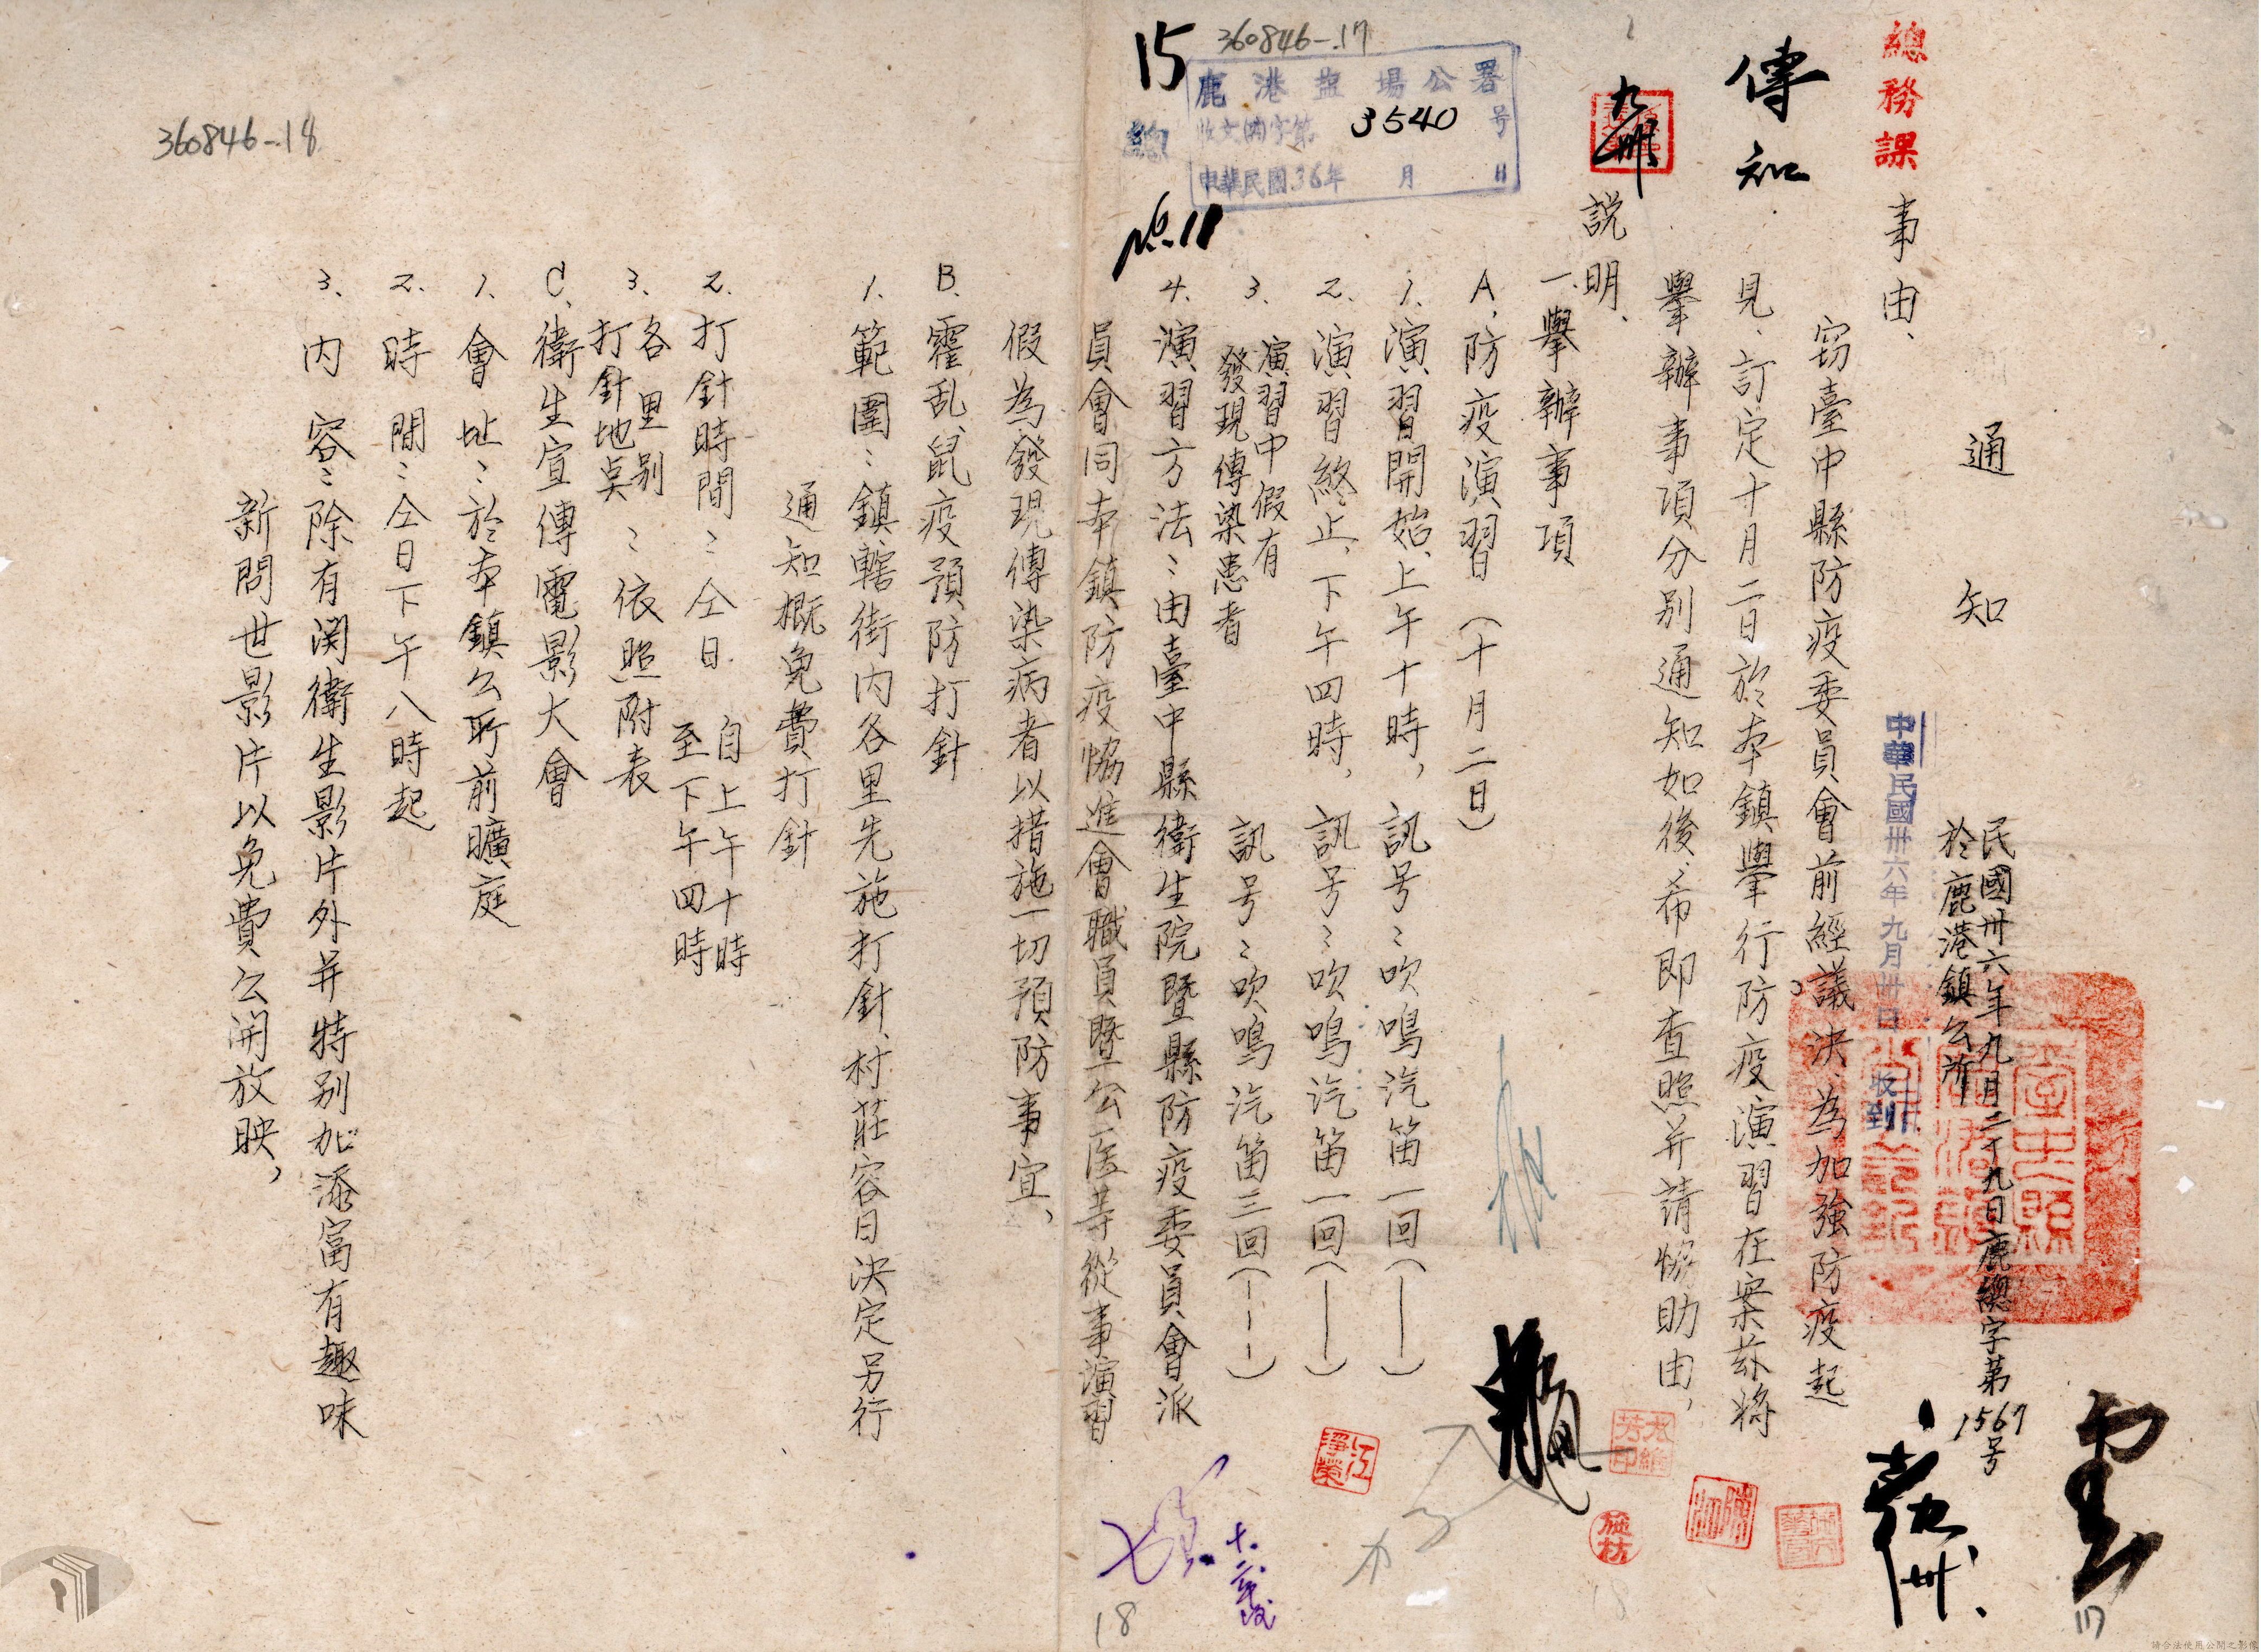 通知
民國卅六年九月二十九日鹿總字第1567号
於鹿港鎮公所
中華民國卅六年九月卅日收到
總務課
事由、
竊臺中縣防疫委員會前經議決、為加強防疫起
見、訂定十月二日於本鎮舉行防疫演習在案茲將
舉辦事項分別通知如後、希即查照并請協助由、
傳知
九卅
説明、
一、舉辦事項
A、防疫演習（十月二日）
1、演習開始、上午十時，訊号：吹鳴汽笛一回（——）
2、演習終止、下午四時，訊号：吹鳴汽笛一回（——）
3、演習中假有發現傳染患者 訊号：吹鳴汽笛三回（---）
4、演習方法：由臺中縣衛生院暨縣防疫委員會派
員會同本鎮防疫協進會職員暨公医等從事演習
假為發現傳染病者以措施一切預防事宜、
B、霍乱、鼠疫預防打針
1、範圍：鎮轄街内各里先施打針、村莊容日決定另行
通知概免費打針
2、打針時間：仝日 自上午十時至下午四時
3、各里別打針地奌：依照附表
C、衛生宣傳電影大會
1、會址：於本鎮公所前曠庭
2、時間：仝日下午八時起
3、内容：除有関衛生影片外并特別加添富有趣味
新問世影片以免費公開放映，
360846-.17
鹿港盐場公署
收文(卅)字第3540号
中華民國36年 月 日
15
總
No.11
360846-.18
江淨榮
施枋
18
17
請合法使用公開之影像